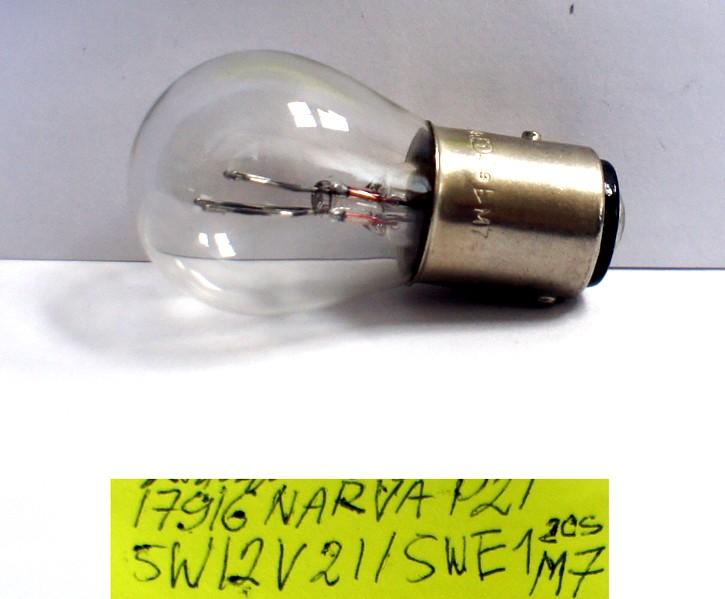 17916 NARVA P21
5W12V 21/5WE1 acs
M7